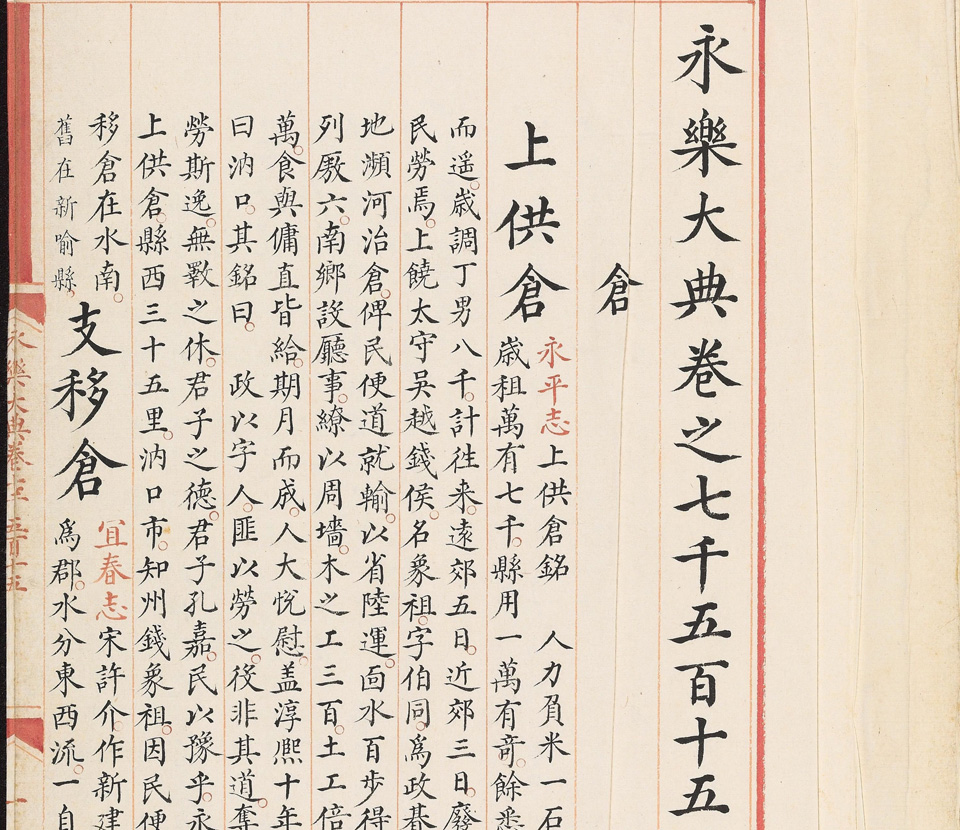 永樂大典卷之七千五百十五
倉
上供倉
永平志上供倉銘　人力負米一石
歲租萬有七千。縣用一萬有竒。餘悉
而遥。歲調丁男八千。計徃来。遠郊五日。近郊三日。廢
民勞焉。上饒太守吳越錢侯。名象祖。字伯同。爲政朞
地瀕河治倉。俾民便道就輸。以省陸運。靣水百步得
列厫六。南鄉設廳事。繚以周墻。木之工三百。土工倍
萬。食與傭直皆給。期月而成。人大悅慰。盖淳熈十年
曰汭口。其銘曰。　政以字人。匪以勞之。後非其道。奪
勞斯逸。無斁之休。君子之德。君子孔嘉。民以豫乎。永
上供倉。縣西三十五里。汭口市。知州錢象祖。因民便
移倉在水南。
舊在新喻縣。
支移倉
宜春志宋許介。作新建
爲郡。水分東西流。一自
永樂大典卷七千五百十五
一